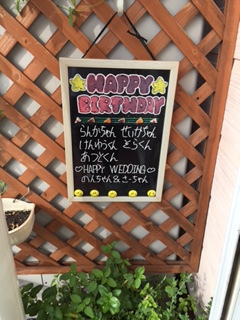 HAPPY
BIRTHDAY
らんかちゃん せいかちゃん
けんゆうくん とらくん
あつとくん
♡HAPPY WEDDING♡
のんちゃん&さーちゃん